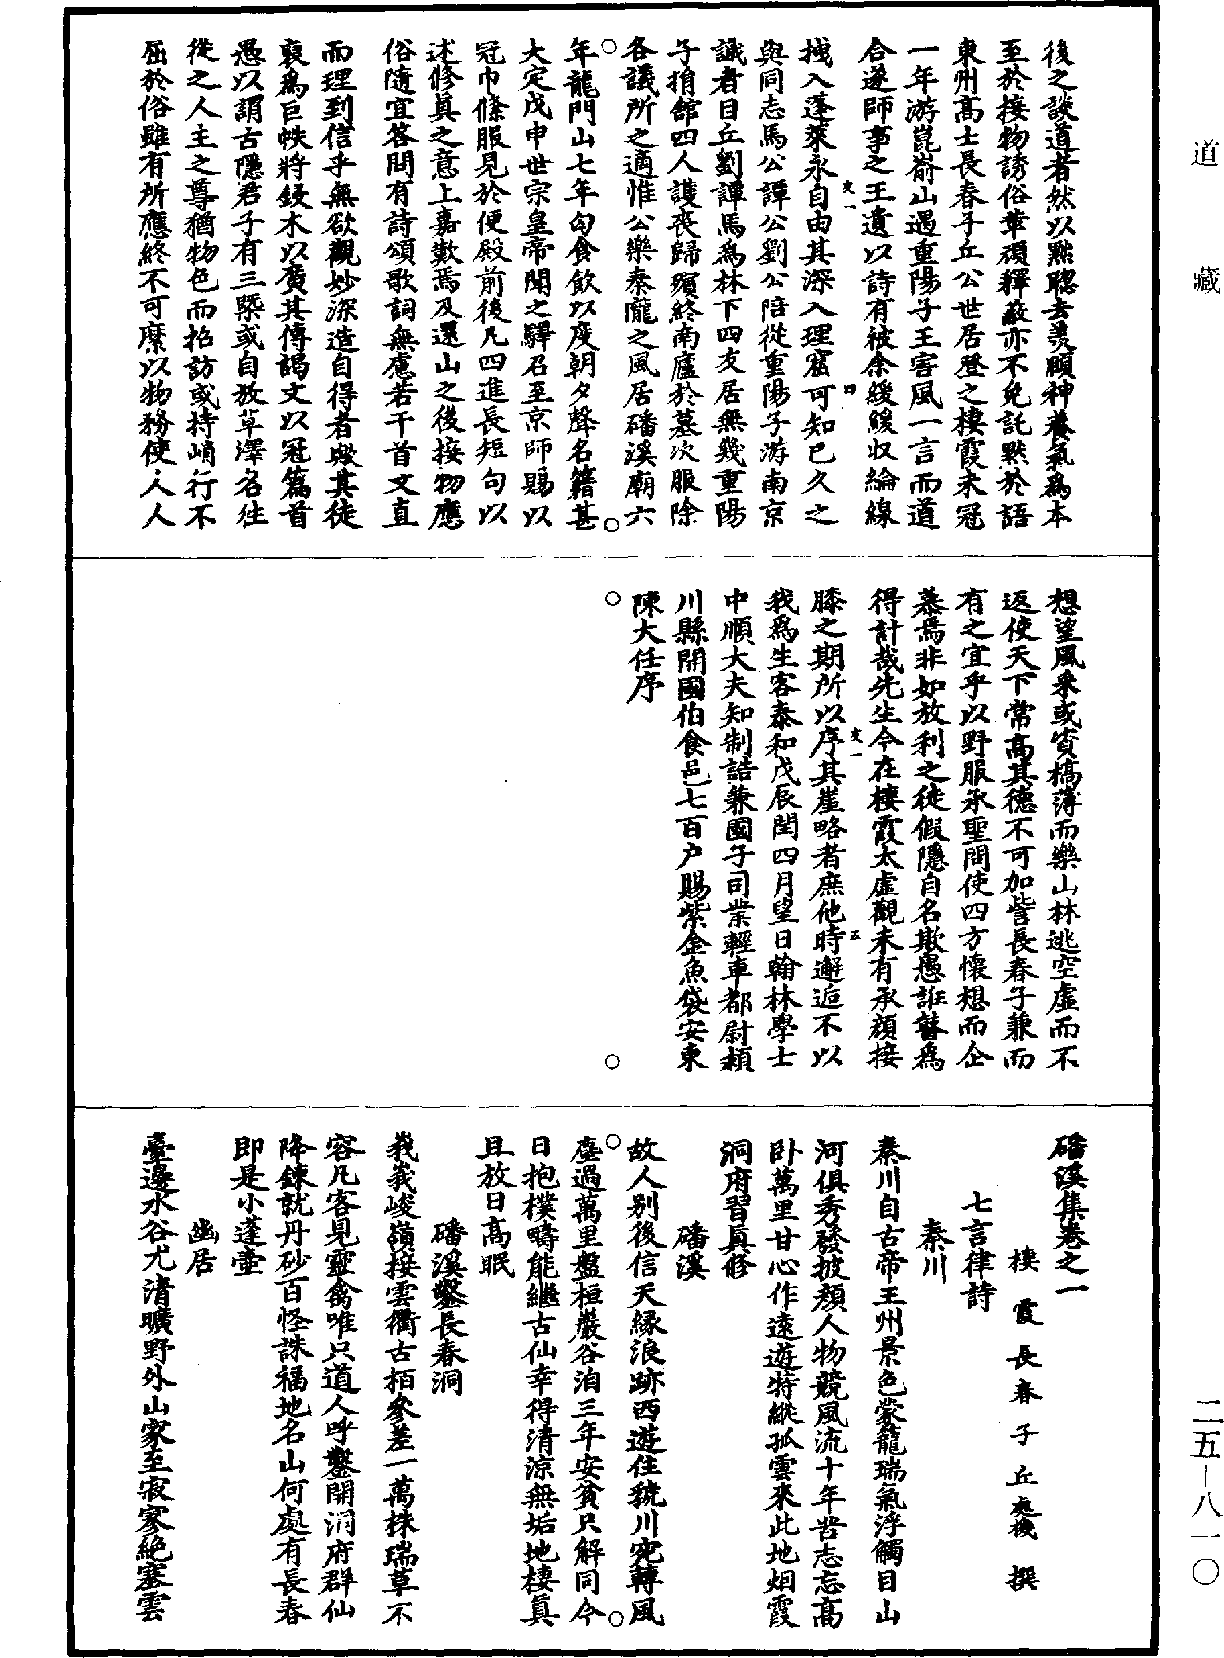 道藏
後之談道者然以黜聰去羨頤神養氣爲本
至於接物誘俗革頑釋蔽亦不免託默於語
東州高士長春子丘公世居登之棲霞未冠
一年游崑嵛山遇重陽子王害風一言而道
合遂師事之王遺以詩有被余緩緩収綸線
拽入蓬萊永自由其深入理窟可知已久之
與同志馬公譚公劉公陪從重陽子游南京
識者目丘劉譚馬爲林下四友居無幾重陽
子捐舘四人護喪歸殯終南廬於墓次服除
各議所之適惟公樂秦隴之風居磻溪廟六
年龍門山七年匄食飲以度朝夕聲名籍甚
大定戊申世宗皇帝聞之驛召至京師賜以
冠巾條服見於便殿前後凡四進長短句以
述修眞之意上嘉歎焉及還山之後接物應
俗隨宜答問有詩頌歌詞無慮若干首文直
而理到信乎無欲觀妙深造自得者與其徒
裒爲巨帙將鋟木以廣其傳謁文以冠篇首
愚以謂古隱君子有三槩或自放草澤名往
從之人主之尊猶物色而招訪或持峭行不
屈於俗雖有所應終不可縻以物務使人人
想望風采或資槁薄而樂山林逃空虛而不
返使天下常高其德不可加訾長春子兼而
有之宜乎以野服承聖問使四方懷想而企
慕焉非如放利之徒假隱自名欺愚誑瞽爲
得計哉先生今在棲霞太虛觀未有承顏接
膝之期所以序其崖略者庶他時邂逅不以
我爲生客泰和戊辰閏四月望日翰林學士
中順大夫知制誥兼國子司業輕車都尉潁
川縣開國伯食邑七百户賜紫金魚袋安東
陳大任序
磻溪集卷之一
棲霞長春子丘處機撰
七言律詩
秦川
秦川自古帝王州景色蒙籠瑞氣浮觸目山
河俱秀發披顏人物競風流十年苦志忘高
卧萬里甘心作遠遊特縱孤雲來此地烟霞
洞府習眞修
磻溪
故人别後信天緣浪跡西遊住虢川宛轉風
塵過萬里盤桓巖谷洎三年安貧只解同今
日抱樸疇能繼古仙幸得清凉無垢地棲眞
且放日高眠
磻溪鑿長春洞
峩峩峻嶺接雲衢古栢參差一萬株瑞草不
容凡客見靈禽唯只道人呼鑿開洞府群仙
降鍊就丹砂百怪誅福地名山何處有長春
即是小蓬壷
幽居
臺邊水谷尤清曠野外山家至寂寥絶塞雲
二五—八一〇